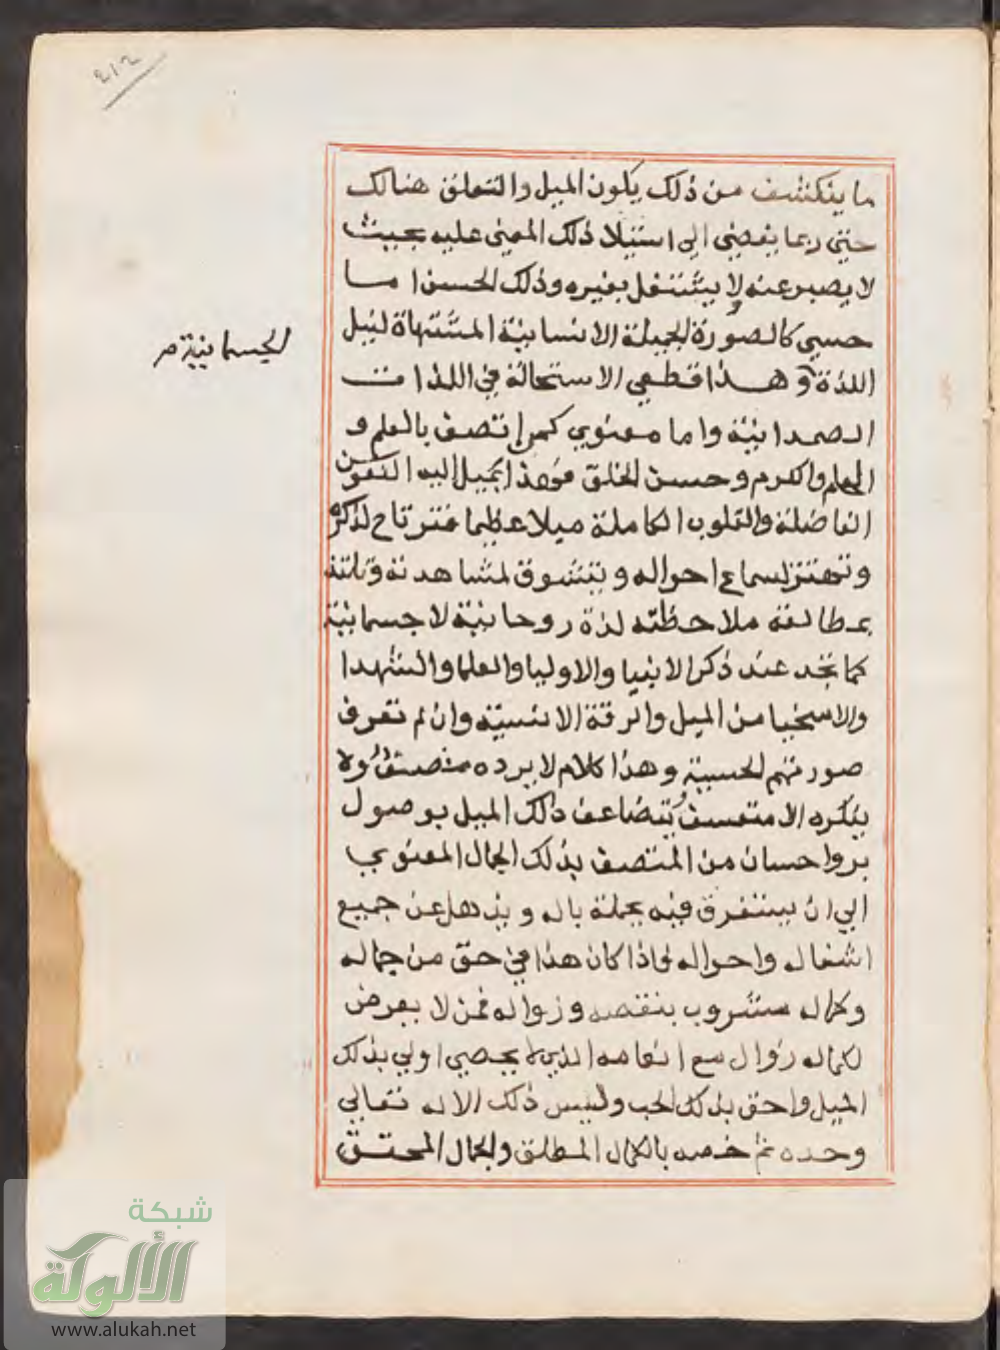 ٢١٢
ما ينكشف من ذلك يكون الميل والتعلق هنالك
حتي ربما يفضي الي استيلا ذلك المعني عليه بحيث
لا يصبر عنه ولا يشتغل بغيره وذلك الحسن اما
حسي كالصورة الجميلة الانسانية المشتهاة لنيل
اللذة وهذا قطعي الاستحالة في اللذات
الجسمانية م
الصمدانية واما معنوي كمن اتصف بالعلم و
الحلم والكرم وحسن الخلق فهذا يميل اليه النفوس
الفاضلة والقلوب الكاملة ميلا عظيما فترتاح لذكره
وتهتز لسماع احواله ويتشوق لمشاهدته وتلتذ
بمطالعة ملاحظته لذة روحانية لا جسمانية
كما تجد عند ذكر الانبيا والاوليا والعلما والشهدا
والاسخيا من الميل والرقة الانسية وان لم تعرف
صورتهم الحسية وهذا كلام لا يرده منصف ولا
ينكره الا متعسف ويتضاعف ذلك الميل بوصول
بر واحسان من المتصف بذلك الجمال المعنوي
الي ان يستغرق فيه بجملة باله ويذهل عن جميع
اشغاله واحواله فاذا كان هذا في حق من جماله
وكماله مشروب بنقصه وزواله فمن لا يعرض
لكماله زوال مع انعامه الذي لا يحصي اولي بذلك
الميل واحق بذلك الحب وليس ذلك الا له تعالي
وحده ثم خصه بالكمال المطلق والجمال المحقق
شبكة
الألوكة
www.alukah.net